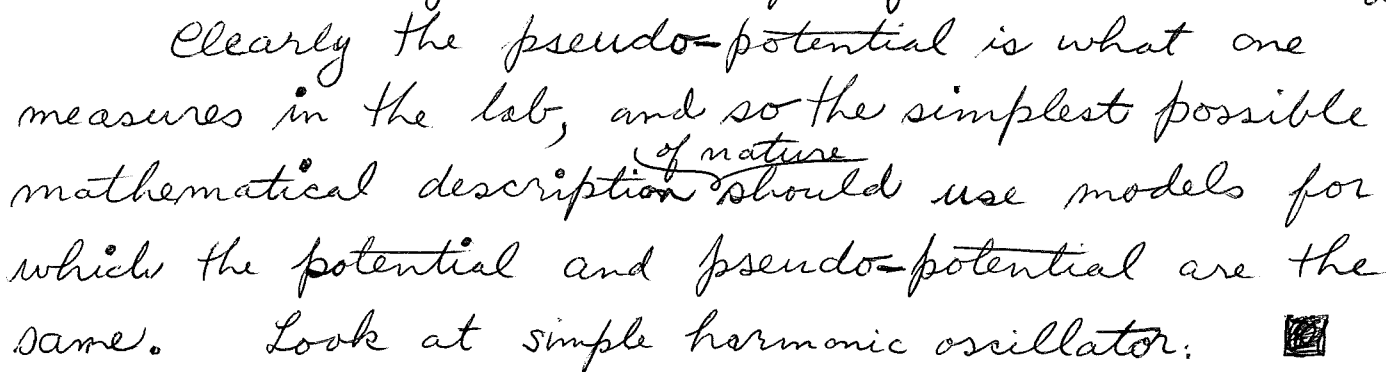 Clearly the pseudo-potential is what one
measures in the lab, and so the simplest possible
of nature
mathematical description should use models for
which the potential and pseudo-potential are the
same. Look at simple harmonic oscillator.